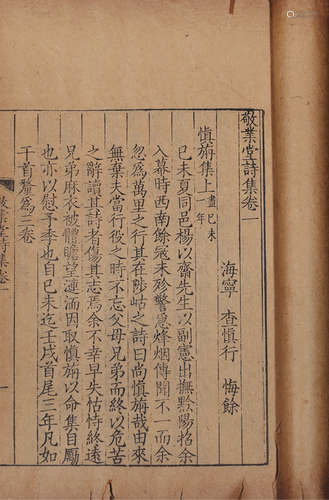 敬業堂詩集卷一
海寧 查慎行 悔餘
慎旃集上 盡己未一年
己未夏同邑楊以齋先生以副憲出撫黔陽招余
入幕時西南餘冦未殄警急烽烟傳聞不一而余
忽爲萬里之行其在陟岵之詩曰尚慎旃哉由來
無棄夫當行役之時不忘父母兄弟而終以危苦
之辭讀其詩者傷其志焉余不幸早失怙恃終遠
兄弟麻衣被體瞻望漣洏因取慎旃以命集目屬
也亦以慰予季也自己未迄壬戌首尾三年凡如
干首釐爲三卷